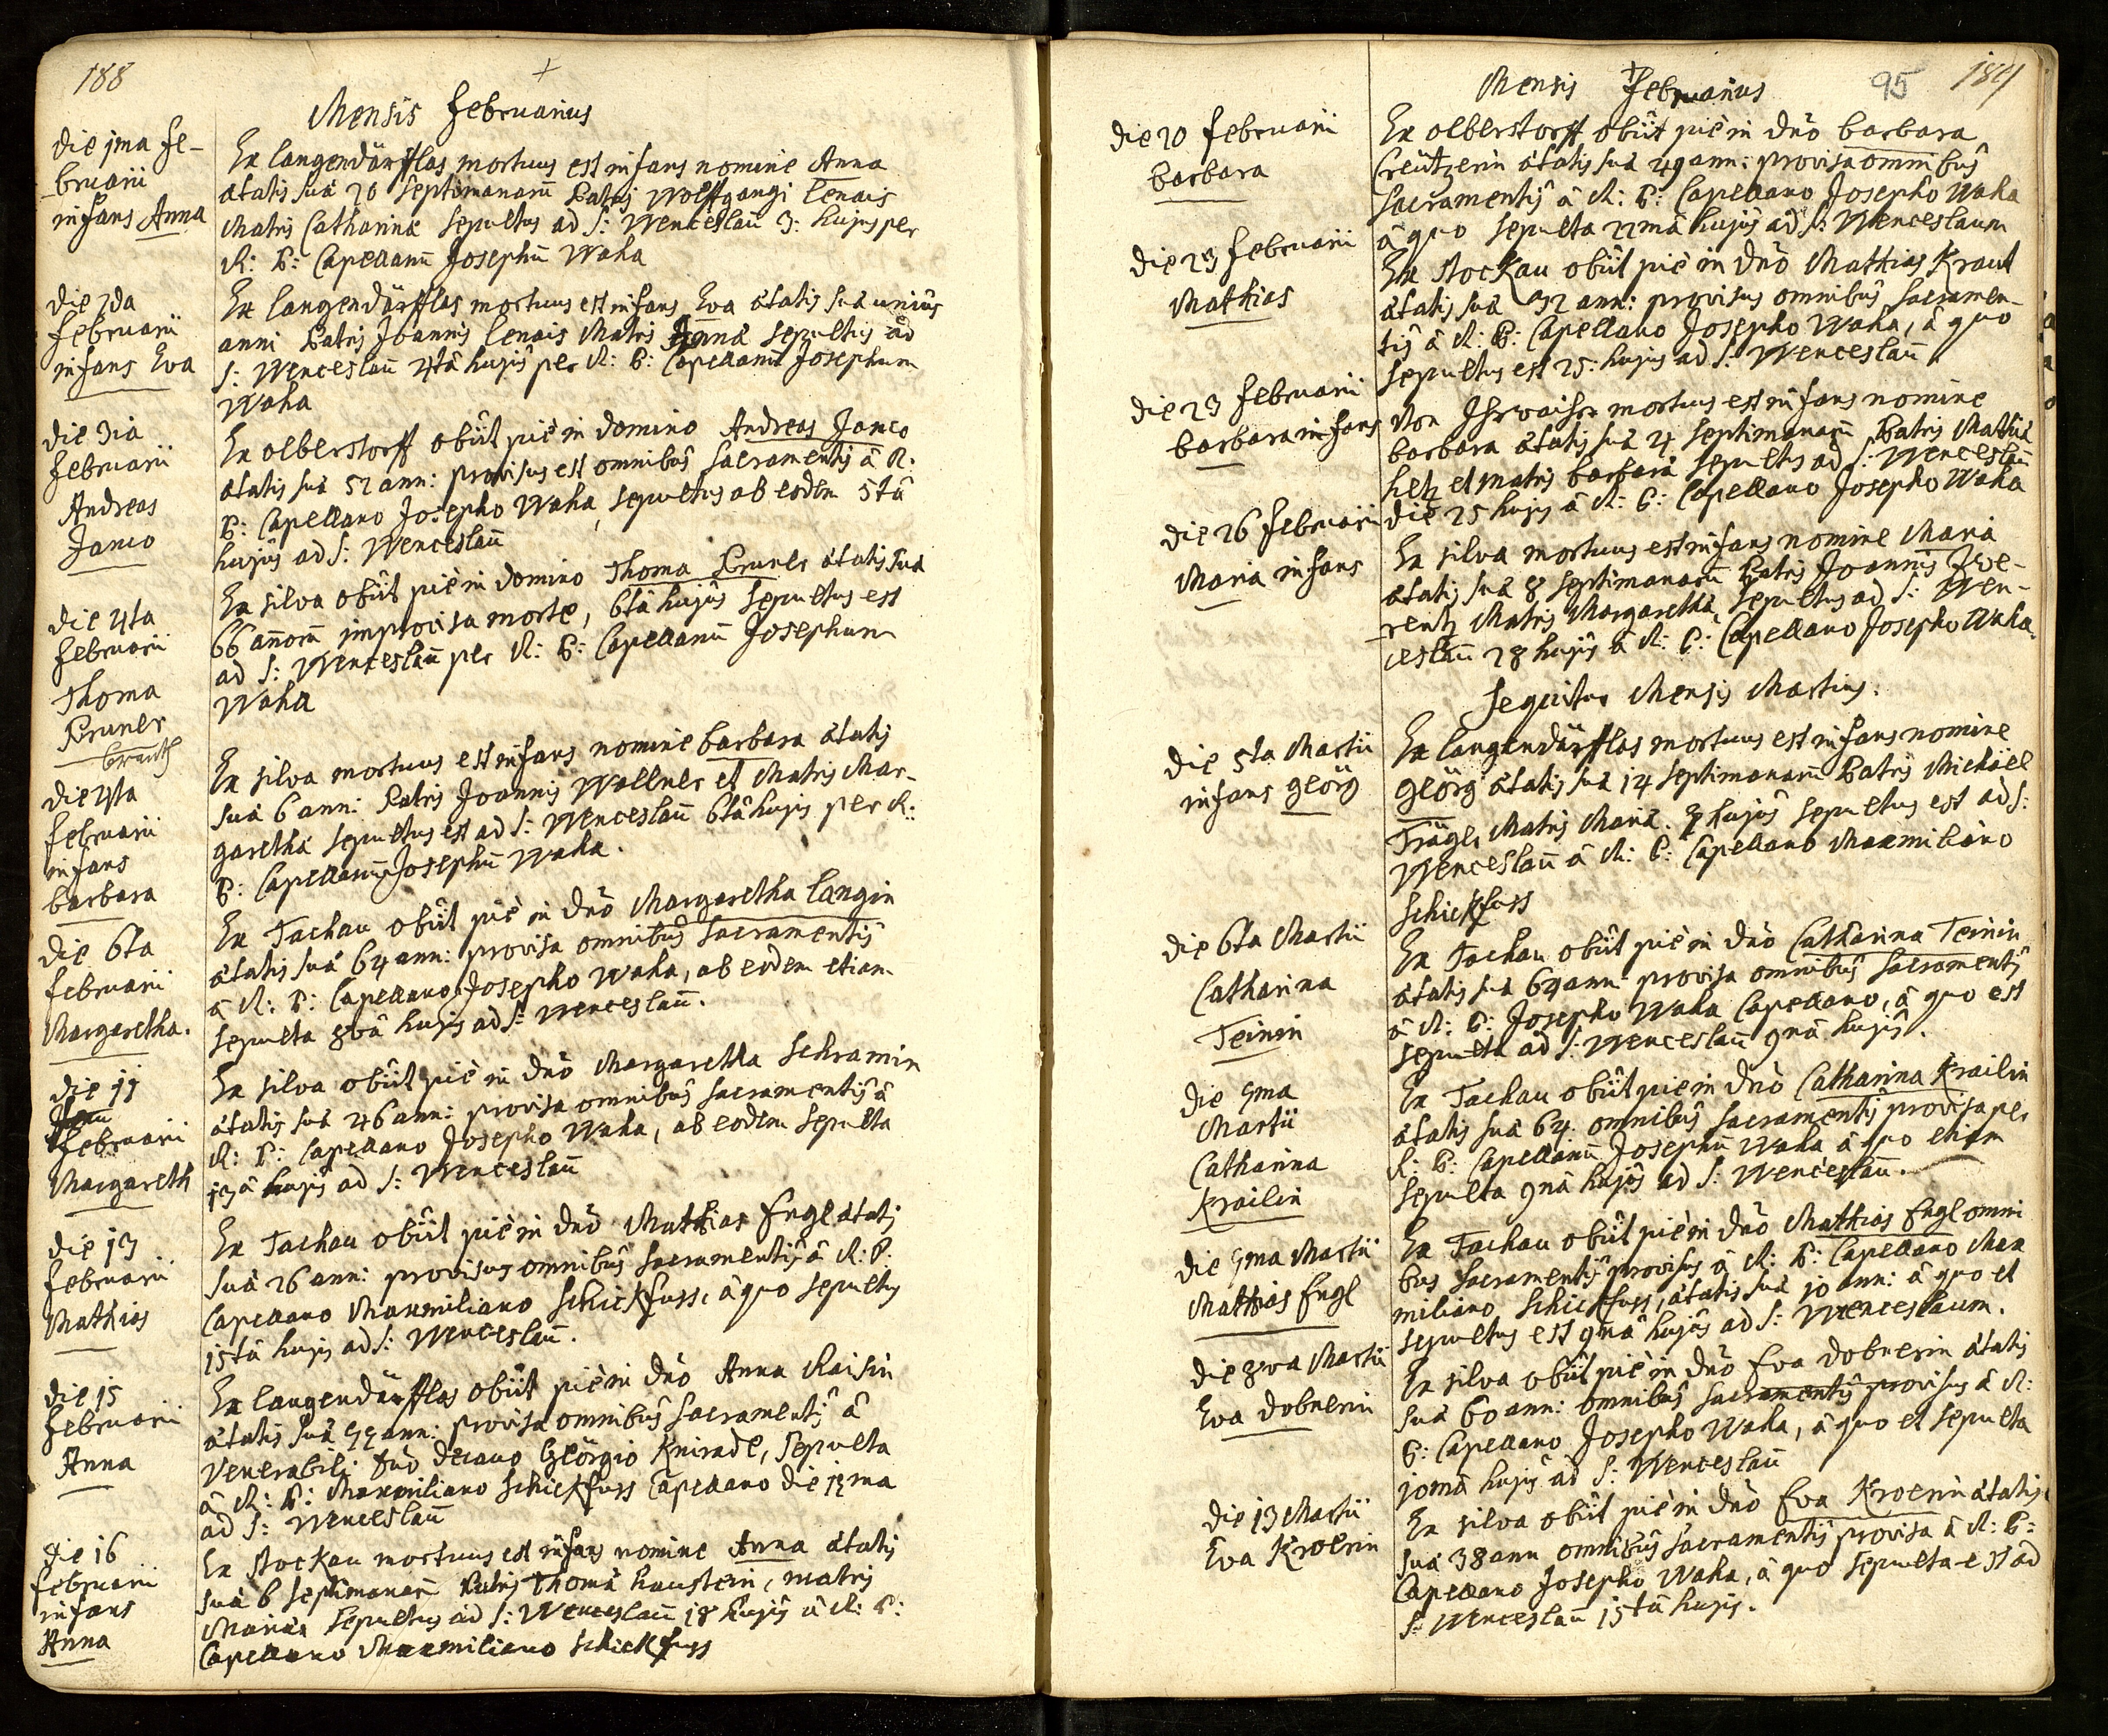 188
+
Mensis Februarius
die 1ma Fe-
bruarii
infans Anna
Ex langendärfflas mortuus est infans nomine Anna
ætatis suæ 20 Septimanarū Patris Wolffgangi lenais
Matris Catharinæ Sepultus ad S: Wenceslaū 3: hujus per
R: P: Capellanū Josephū Waha
die 2da
Februarii
infans Eva
Ex langendärfflas mortuus est infans Eva ætatis suæ unius
anni Patris Joannis lenais Matris Annæ Sepultus ad
S: Wenceslaū 4tâ hujus per R: P: Capellanū Josephum
Waha
die 3ia
Februarii
Andreas
Janco
Ex olberstorff obiit piè in domino Andreas Janco
ætatis suæ 52 ann: provisus est omnibus Sacramentis â R:
P: Capellano Josepho Waha, sepultus ab eodem 5tâ
hujus ad S: Wenceslaū
die 4ta
Februarii
Thoma
Pruner
Ex silva obiit piè in domino Thoma Pruner ætatis suæ
66 añorū improvisa morte, 6tâ hujus Sepultus est
ad S: Wenceslaū per R: P: Capellanū Josephum
Waha
die 4ta
Februarii
infans
barbara
Ex silva mortuus est infans nomine barbara ætatis
suæ 6 ann: Patris Joannis Wellner et Matris Mar-
garethæ sepultus est ad S: Wenceslaū 6tâ hujus per R:
P: Capellanū Josephū Waha.
die 6ta
Februarii
Margaretha.
Ex Tachau obiit piè in dño Margaretha langin
ætatis suæ 64 ann: provisa omnibus Sacramentis
â R: P: Capellano Josepho Waha, ab eodem etiam
sepulta 8vâ hujus ad S: Wenceslaū.
die 11
Februarii
Margareth
Ex silva obiit piè in dño Margaretha Schramin
ætatis suæ 46 ann: provisa omnibus Sacramentis â
R: P: Capellano Josepho Waha, ab eodem Sepulta
13â hujus ad S: Wenceslaū
die 13
Februarii
Mathias
Ex Tachau obiit piè in dño Mathias Engl ætatis
suæ 26 ann: provisus omnibus Sacramentis â R: P:
Capellano Maxmiliano Schickfuss, â quo Sepultus
15tâ hujus ad S: Wenceslaū.
die 15
Februarii
Anna
Ex langendärfflas obiit piè in dño Anna Raisin
ætatis suæ 55 ann: provisa omnibus Sacramentis â
Venerabili dño decano Geörgio Knirade, Sepulta
â R: P: Maxmiliano Schickfuss Capellano die 17ma
ad S: Wenceslaū
die 16
Februarii
infans
Anna
Ex stockau mortuus est infans nomine Anna ætatis
suæ 6 septimanarū Patris Thomæ haustein, matris
Mariæ, Sepultus ad S: Wenceslaū 18 hujus â R: P:
Capellano Maxmiliano Schickfuss
+
Mensis Februarius
95
189
die 20 Februarii
barbara
Ex olberstorff obiit piè in dño barbara
Creützerin ætatis suæ 49 ann: provisa omnibus
Sacramentis â R: P: Capellano Josepho Waha
â quo sepulta 22mâ hujus ad S: Wenceslaum
die 23 Februarii
Mathias
Ex stockau obiit piè in dño Mathias Kraut
ætatis suæ 32 ann: provisus omnibus Sacramen-
tis â R: P: Capellano Josepho Waha, â quo
sepultus est 25: hujus ad S: Wenceslaū.
die 23 Februarii
barbara infans
Mortuus est infans nomine
barbara ætatis suæ 4 septimanarū Patris Mathiæ
hetz et matris barbaræ sepultus ad S: Wenceslaū
die 25 hujus â R: P: Capellano Josepho Waha
die 26 Februarii
Maria infans
Ex silva mortuus est infans nomine Maria
ætatis suæ 8 Septimanarū Patris Joannis Zwe-
rentz Matris Margarethæ, Sepultus ad S: Wen-
ceslaū 28 hujus â R: P: Capellano Josepho Waha.
Sequitur Mensis Martius.
die 5ta Martii
infans Geörg
Ex langendärfflas mortuus est infans nomine
Geörg ætatis suæ 14 septimanarū Patris Michäel
Trägl, Matris Mariæ. 7 hujus sepultus est ad S:
Wenceslaū â R: P: Capellano Maxmiliano
Schickfuss
die 6ta Martii
Catharina
Teinin
Ex Tachau obiit piè in dño Catharina Teinin
ætatis suæ 64 ann: provisa omnibus Sacramentis
â R: P: Josepho Waha Capellano, â quo est
sepulta ad S: Wenceslaū 9nâ hujus.
die 7ma
Martii
Catharina
Krailin
Ex Tachau obiit piè in dño Catharina Krailin
ætatis suæ 64. omnibus Sacramentis provisa per
R: P: Capellanū Josephū Waha â quo etiam
Sepulta 9nâ hujus ad S: Wenceslaū.
die 7ma Martii
Mathias Engl
Ex Tachau obiit piè in dño Mathias Engl omni
bus Sacramentis provisus â R: P: Capellano Max
miliano Schickfuss, ætatis suæ 10 ann: â quo et
sepultus est 9nâ hujus ad S: Wenceslaum.
die 8va Martii
Eva dobnerin
Ex silva obiit piè in dño Eva dobnerin ætatis
suæ 60 ann: omnibus Sacramentis provisus â R:
P: Capellano Josepho Waha, â quo et sepulta
10mâ hujus ad S: Wenceslaū
die 13 Martii
Eva Kroerin
Ex silva obiit piè in dño Eva Kroerin ætatis
suæ 38 ann omnibus Sacramentis provisa â R: P:
Capellano Josepho Waha, â quo sepulta est ad
S: Wenceslaū 15tâ hujus.